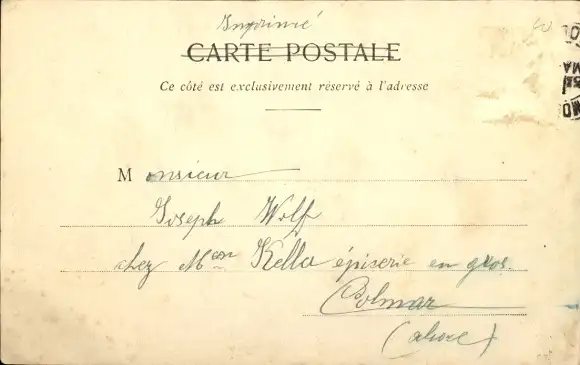 Imprimé
CARTE POSTALE
Ce côté est exclusivement réservé à l'adresse
Monsieur
Joseph Wolf
chez Mesr Kella épiserie en gros.
Colmar
(alsace)